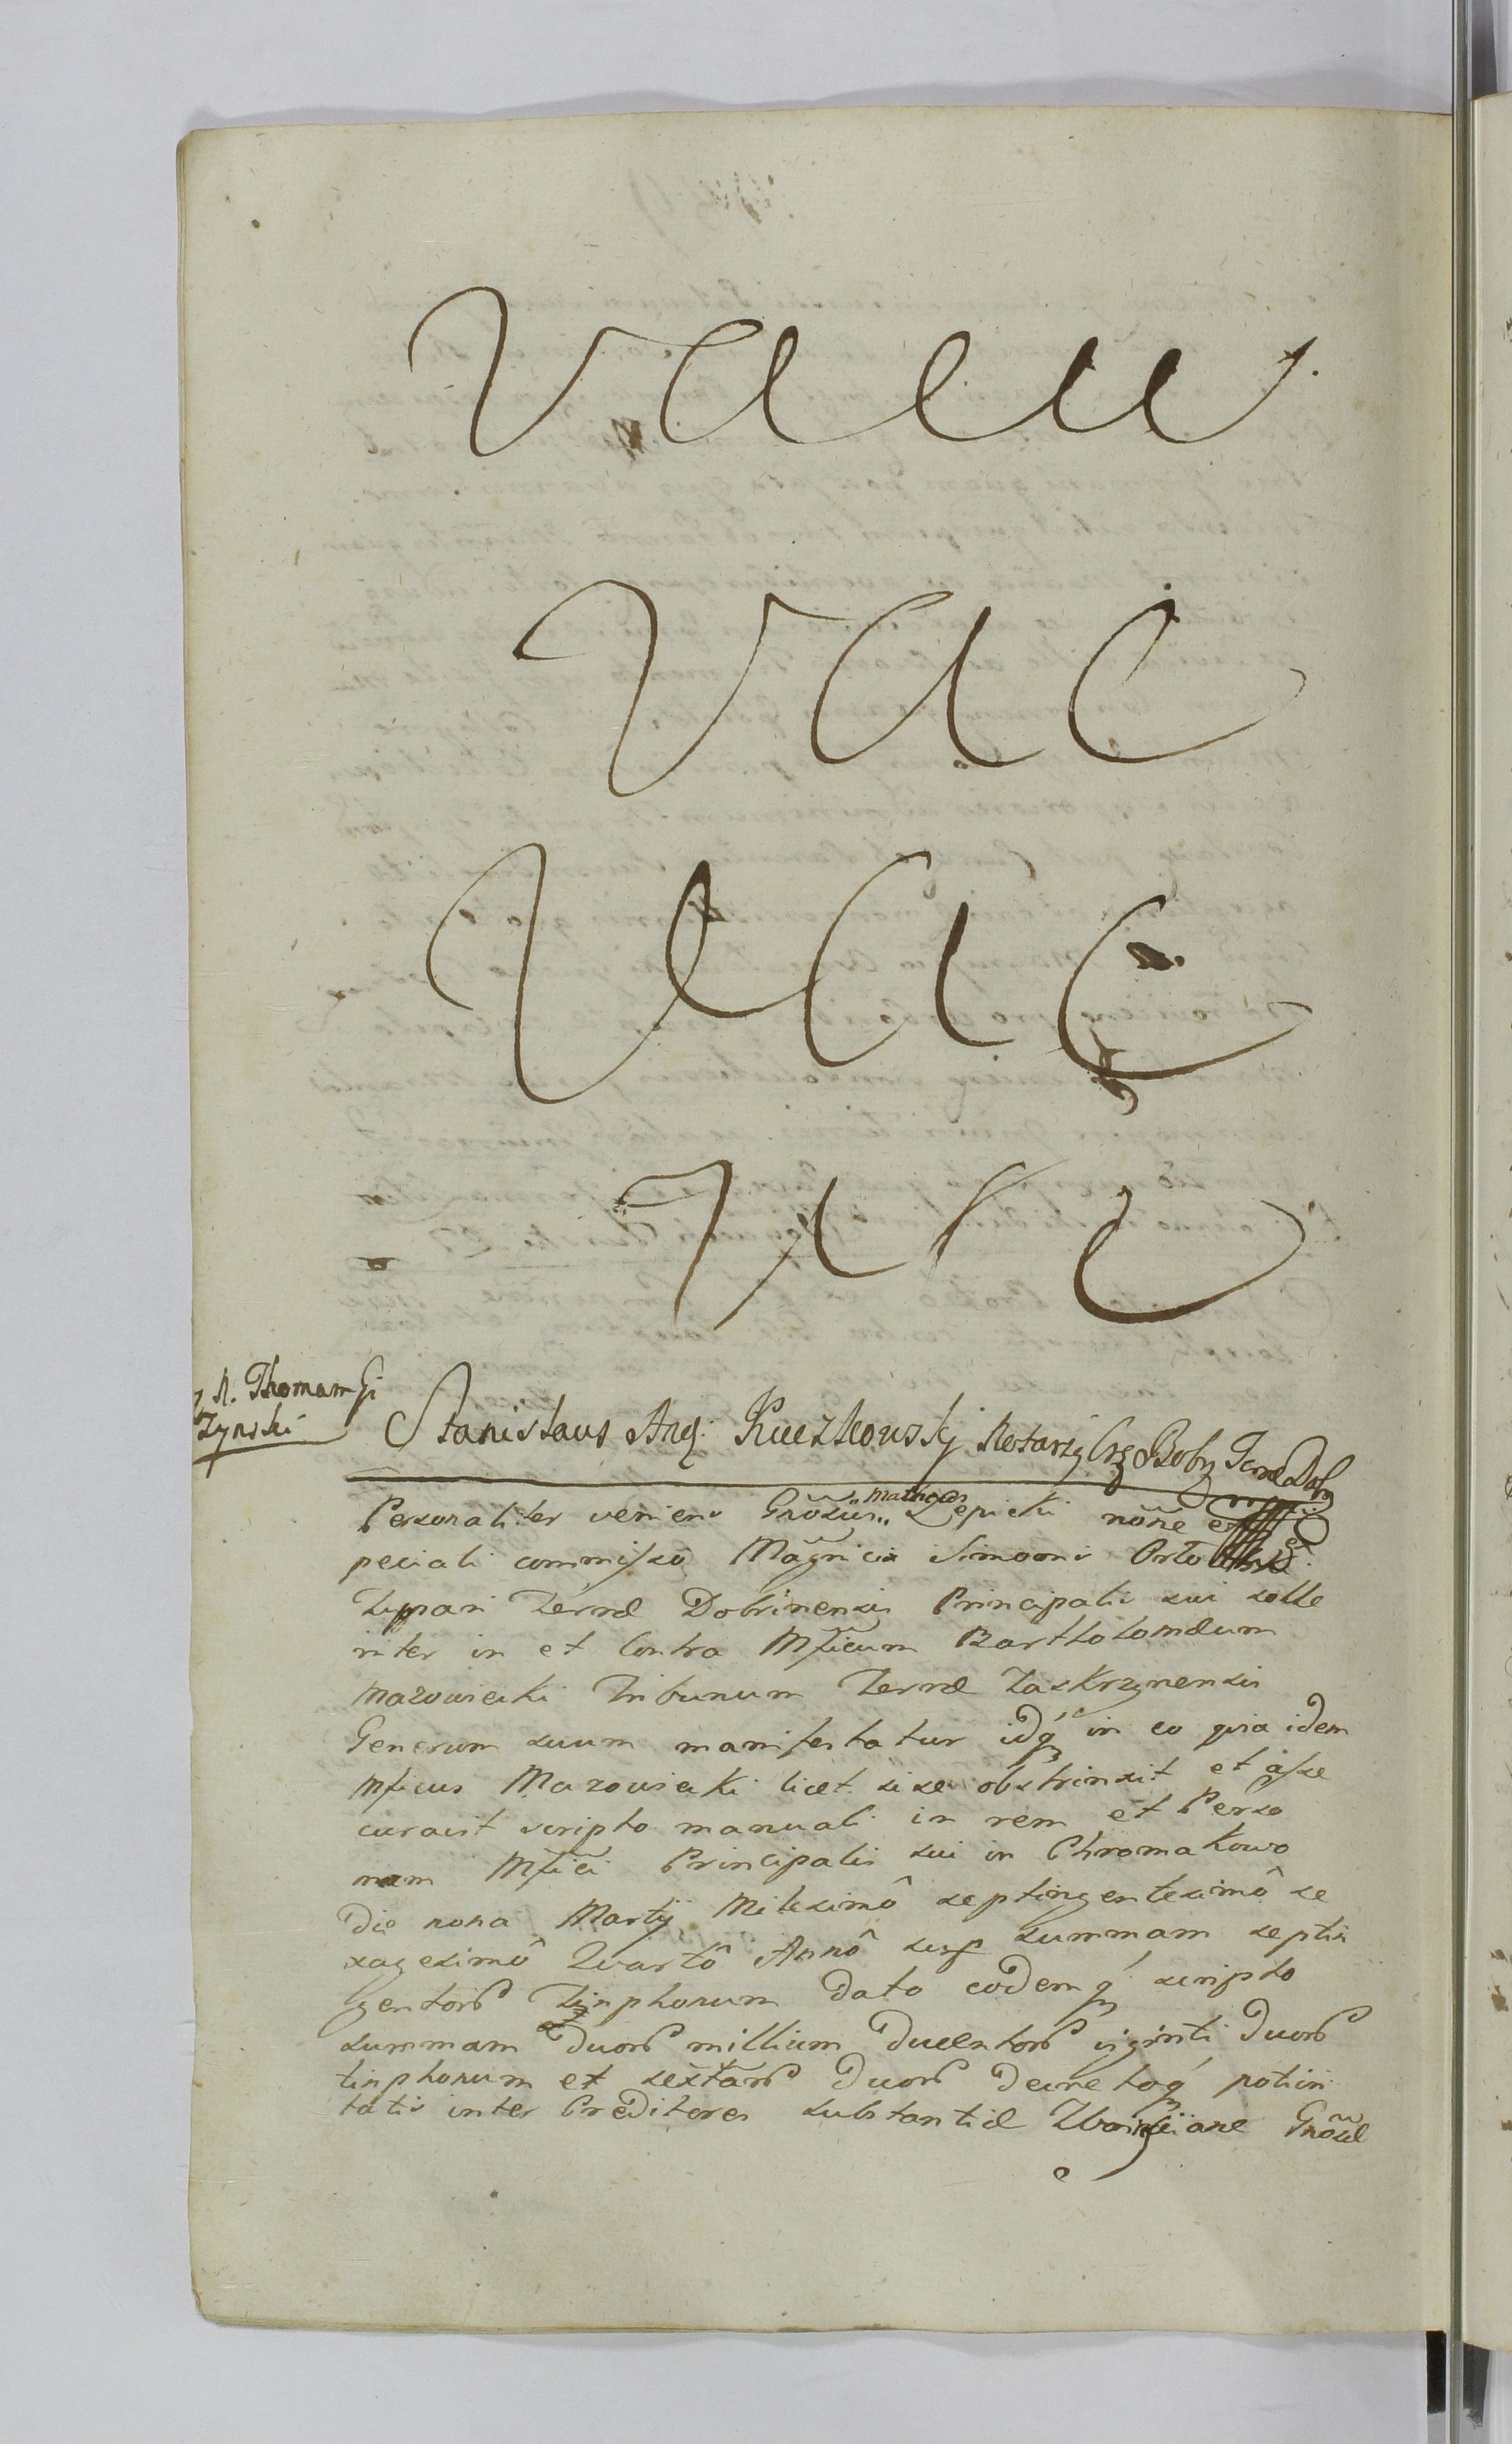 Vacu
Vac
Vac
Vac
R. Thomam Gi
Zynski
Stanislaus Aug: Kuczkowskj Notariÿ
Personaliter veniens Gnosus Mathaeus Lepicki noñe et
peciali commisso Magnici Simonis
Zupari Terræ Dobrinensis Principalis sui solle
niter in et Contra Mficum Bartholomæum
Mazowiecki Tribunum Terræ Zaskrzynensis
Generum suum manifestatur idq́ in eo quia idem
Mficus Mazowiecki licet sise obstrinxit et asse
curavit scripto manuali in rem et Perso
nam Mfici Principalis sui in Chromakowo
Die nona Martÿ Milesimô septingentesimô se
xagesimô Quartô Annô summam septin
gentor Tinphonum dato eodemq́ scripto
summam duor millium ducentor viginti duor
tinphonum et duor decretoq́ potiori
tatis inter Creditores substantiæ Gnosæ